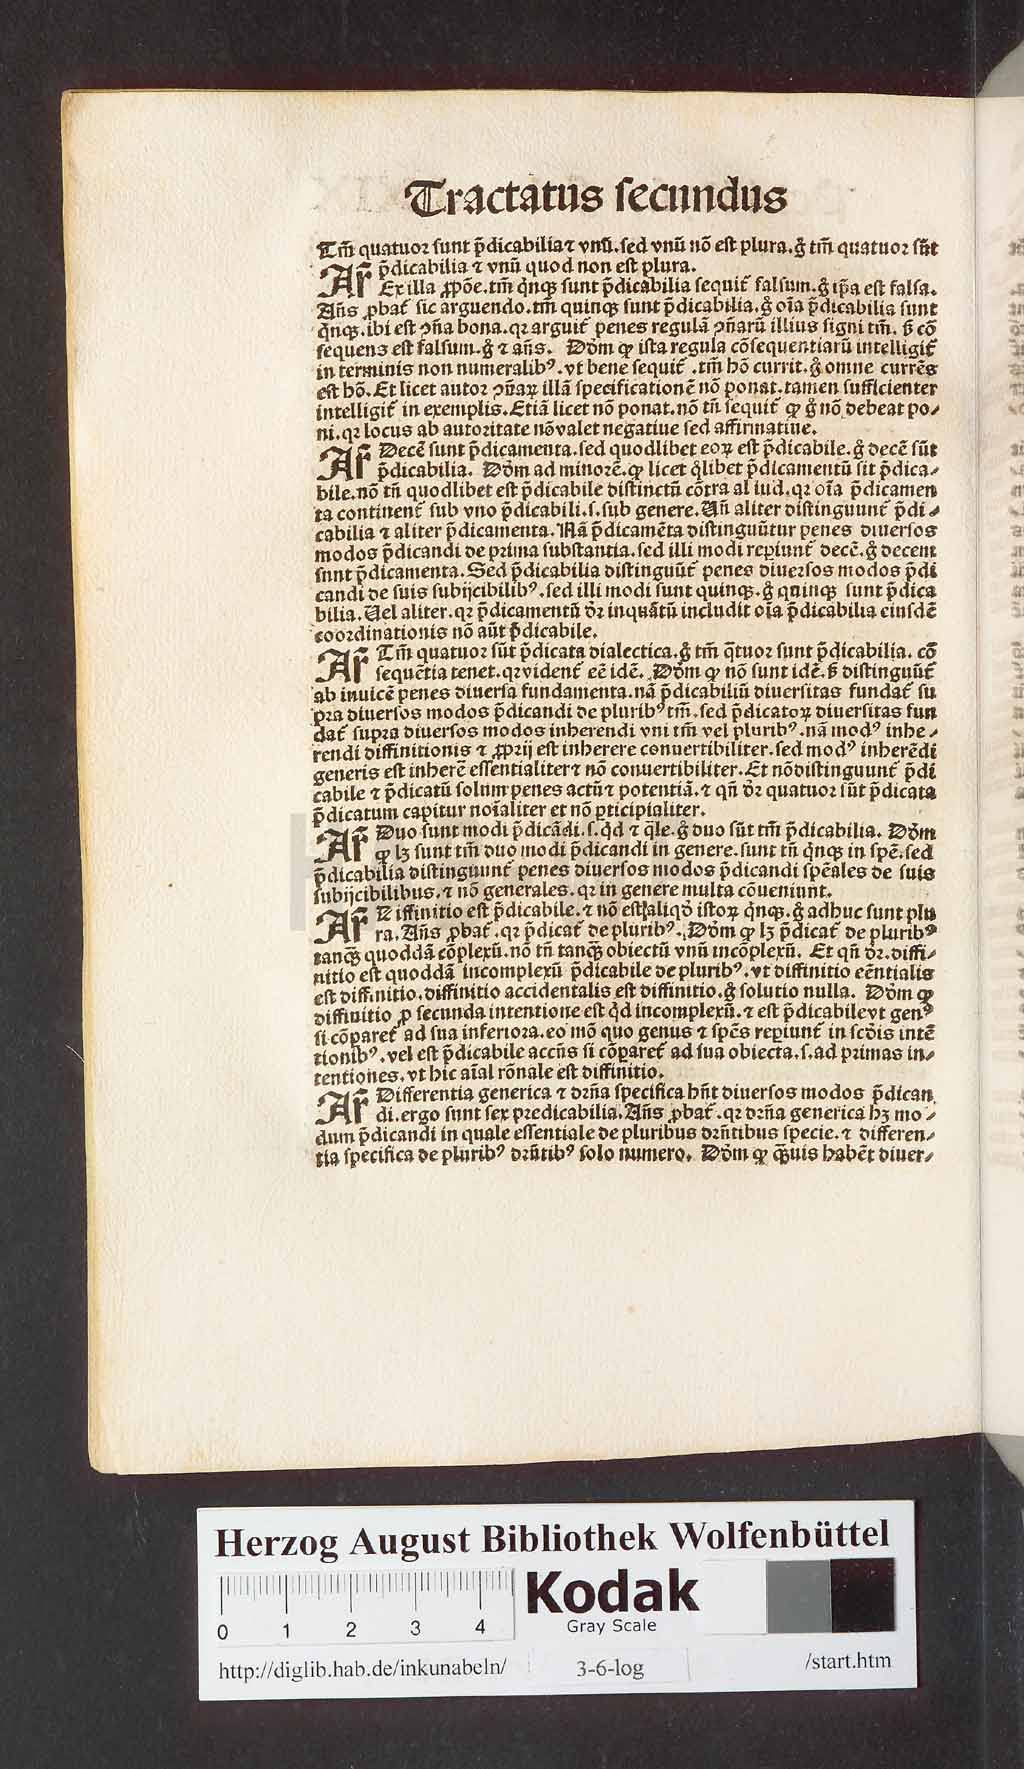 Tractatus ſecundus
Tm̄ quatuor ſunt p̄dicabilia ⁊ vnū. ſed vnū nō eſt plura. gͦ tm̄ quatuor ſūt
p̄dicabilia ⁊ vnū quod non eſt plura.
Ar̄ Ex illa ꝓpōe. tm̄ qͥnqꝫ ſunt p̄dicabilia ſequit᷑ falſum. gͦ ip̄a eſt falſa.
Añs ꝓbat᷑ ſic arguendo. tm̄ quinqꝫ ſunt p̄dicabilia. gͦ oīa p̄dicabilia ſunt
qͥnqꝫ. ibi eſt ꝯña bona. qꝛ arguit᷑ penes regulā ꝯñarū illius ſigni tm̄. ſꝫ cō
ſequens eſt falſum. gͦ ⁊ añs. Dōm ꝙ iſta regula cōſequentiarū intelligit᷑
in terminis non numeralibꝰ. vt bene ſequit᷑. tm̄ hō currit. gͦ omne currēs
eſt hō. Et licet autor ꝯñaꝝ illā ſpecificationē nō ponat. tamen ſufficienter
intelligit᷑ in exemplis. Etiā licet nō ponat. nō tñ ſequit᷑ ꝙ gͦ nō debeat po⸗
ni. qꝛ locus ab autoritate nō valet negatiue ſed affirmatiue.
Ar̄ Decē ſunt p̄dicamenta. ſed quodlibet eoꝝ eſt p̄dicabile. gͦ decē ſūt
p̄dicabilia. Dōm ad minorē. ꝙ licet qͥlibet p̄dicamentū ſit p̄dica⸗
bile. nō tñ quodlibet eſt p̄dicabile diſtinctū cōtra aliud. qꝛ oīa p̄dicamen
ta continent᷑ ſub vno p̄dicabili. ſ. ſub genere. Vñ aliter diſtinguunt᷑ p̄di⸗
cabilia ⁊ aliter p̄dicamenta. Nā p̄dicamēta diſtinguūtur penes diuerſos
modos p̄dicandi de prima ſubſtantia. ſed illi modi repiunt᷑ decē. gͦ decem
ſunt p̄dicamenta. Sed p̄dicabilia diſtinguūt᷑ penes diuerſos modos p̄di
candi de ſuis ſubijcibilibꝰ. ſed illi modi ſunt quinqꝫ. gͦ quinqꝫ ſunt p̄dica
bilia. Uel aliter. qꝛ p̄dicamentū dꝛ inquātū includit oīa p̄dicabilia eiuſdē
coordinationis nō aūt p̄dicabile.
Ar̄ Tm̄ quatuor ſūt p̄dicata dialectica. gͦ tm̄ q̄tuor ſunt p̄dicabilia. cō
ſequētia tenet. qꝛ vident᷑ eē idē. Dōm ꝙ nō ſunt idē. ſꝫ diſtinguūt᷑
ab inuicē penes diuerſa fundamenta. nā p̄dicabiliū diuerſitas fundat᷑ ſu
pra diuerſos modos p̄dicandi de pluribꝰ tm̄. ſed p̄dicatoꝝ diuerſitas fun
dat᷑ ſupra diuerſos modos inherendi vni tm̄ vel pluribꝰ. nā modꝰ inhe⸗
rendi diffinitionis ⁊ ꝓprij eſt inherere conuertibiliter. ſed modꝰ inherēdi
generis eſt inherē eſſentialiter ⁊ nō conuertibiliter. Et nō diſtinguunt᷑ p̄di
cabile ⁊ p̄dicatū ſolum penes actū ⁊ potentiā. ⁊ qñ dꝛ quatuor ſūt p̄dicata
p̄dicatum capitur noīaliter et nō ꝑticipialiter.
Ar̄ Duo ſunt modi p̄dicādi. ſ. qͥd ⁊ q̄le. gͦ duo ſūt tm̄ p̄dicabilia. Dōm
ꝙ lꝫ ſunt tm̄ duo modi p̄dicandi in genere. ſunt tñ qͥnqꝫ in ſpē. ſed
p̄dicabilia diſtinguunt᷑ penes diuerſos modos p̄dicandi ſpēales de ſuis
ſubijcibilibus. ⁊ nō generales. qꝛ in genere multa cōueniunt.
Ar̄ Diffinitio eſt p̄dicabile. ⁊ nō eſt aliqd̓ iſtoꝝ qͥnqꝫ. gͦ adhuc ſunt plu
ra. Añs ꝓbat᷑. qꝛ p̄dicat᷑ de pluribꝰ. Dōm ꝙ lꝫ p̄dicat᷑ de pluribꝰ
tanqꝫ quoddā cōplexū. nō tñ tanqꝫ obiectū vnū incōplexū. Et qñ dꝛ. diffi⸗
nitio eſt quoddā incomplexū p̄dicabile de pluribꝰ. vt diffinitio eēntialis
eſt diffinitio. diffinitio accidentalis eſt diffinitio. gͦ ſolutio nulla. Dōm ꝙ
diffinitio ꝓ ſecunda intentione eſt qͥd incomplexū. ⁊ eſt p̄dicabile vt genꝰ
ſi cōparet᷑ ad ſua inferiora. eo mō quo genus ⁊ ſpēs repiunt᷑ in ſcd̓is intē
tionibꝰ. vel eſt p̄dicabile accñs ſi cōparet᷑ ad ſua obiecta. ſ. ad primas in⸗
tentiones. vt hic aīal rōnale eſt diffinitio.
Ar̄ Differentia generica ⁊ dr̄ña ſpecifica hñt diuerſos modos p̄dican
di. ergo ſunt ſex predicabilia. Añs ꝓbat᷑. qꝛ dr̄ña generica hꝫ mo⸗
dum p̄dicandi in quale eſſentiale de pluribus dr̄ñtibus ſpecie. ⁊ differen⸗
tia ſpecifica de pluribꝰ dr̄ñtibꝰ ſolo numero. Dōm ꝙ qꝫuis habēt diuer⸗
Herzog August Bibliothek Wolfenbüttel
0 1 2 3 4
Kodak
Gray Scale
http://diglib.hab.de/inkunabeln/ 3-6-log /start.htm